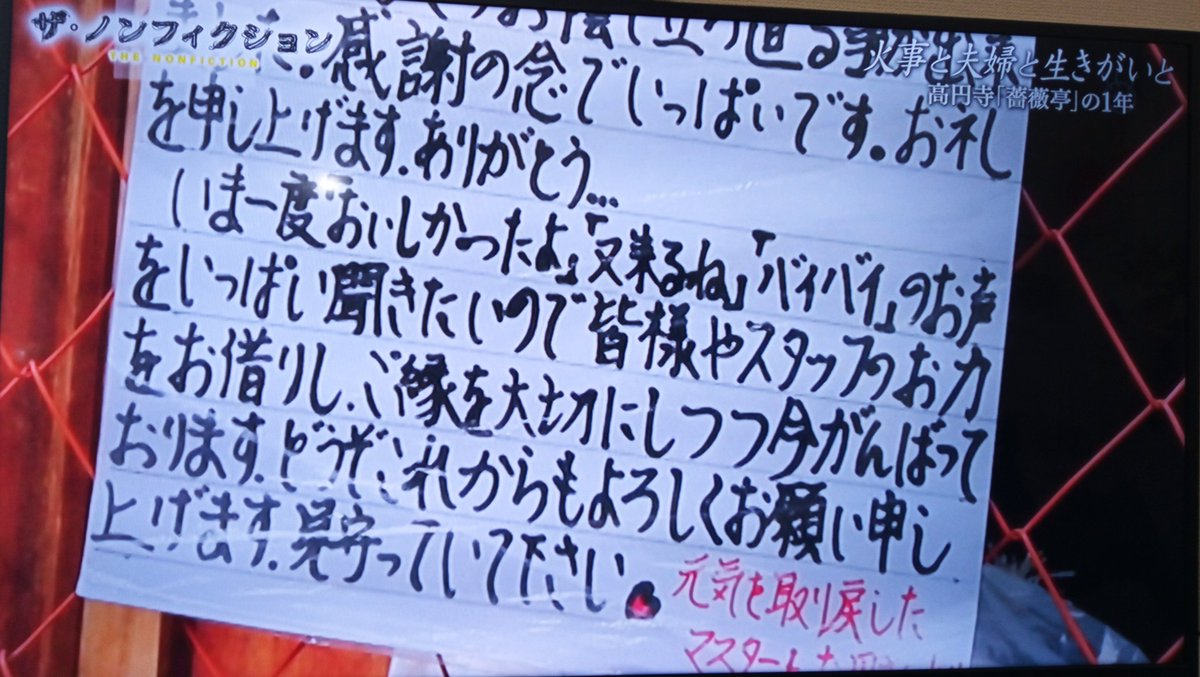 ザ・ノンフィクション
THE NONFICTION
火事と夫婦と生きがいと
高円寺「薔薇亭」の1年
立ち直る事
感謝の念でいっぱいです。お礼
を申し上げます。ありがとう…
いま一度おいしかったよ」「又来るね」「バイバイ」のお声
をいっぱい聞きたいので皆様やスタッフのお力
をお借りし、ご縁を大切にしつつ今がんばって
おります。どうぞこれからもよろしくお願い申し
上げます。見守っていて下さい。
元気を取り戻した
マスター